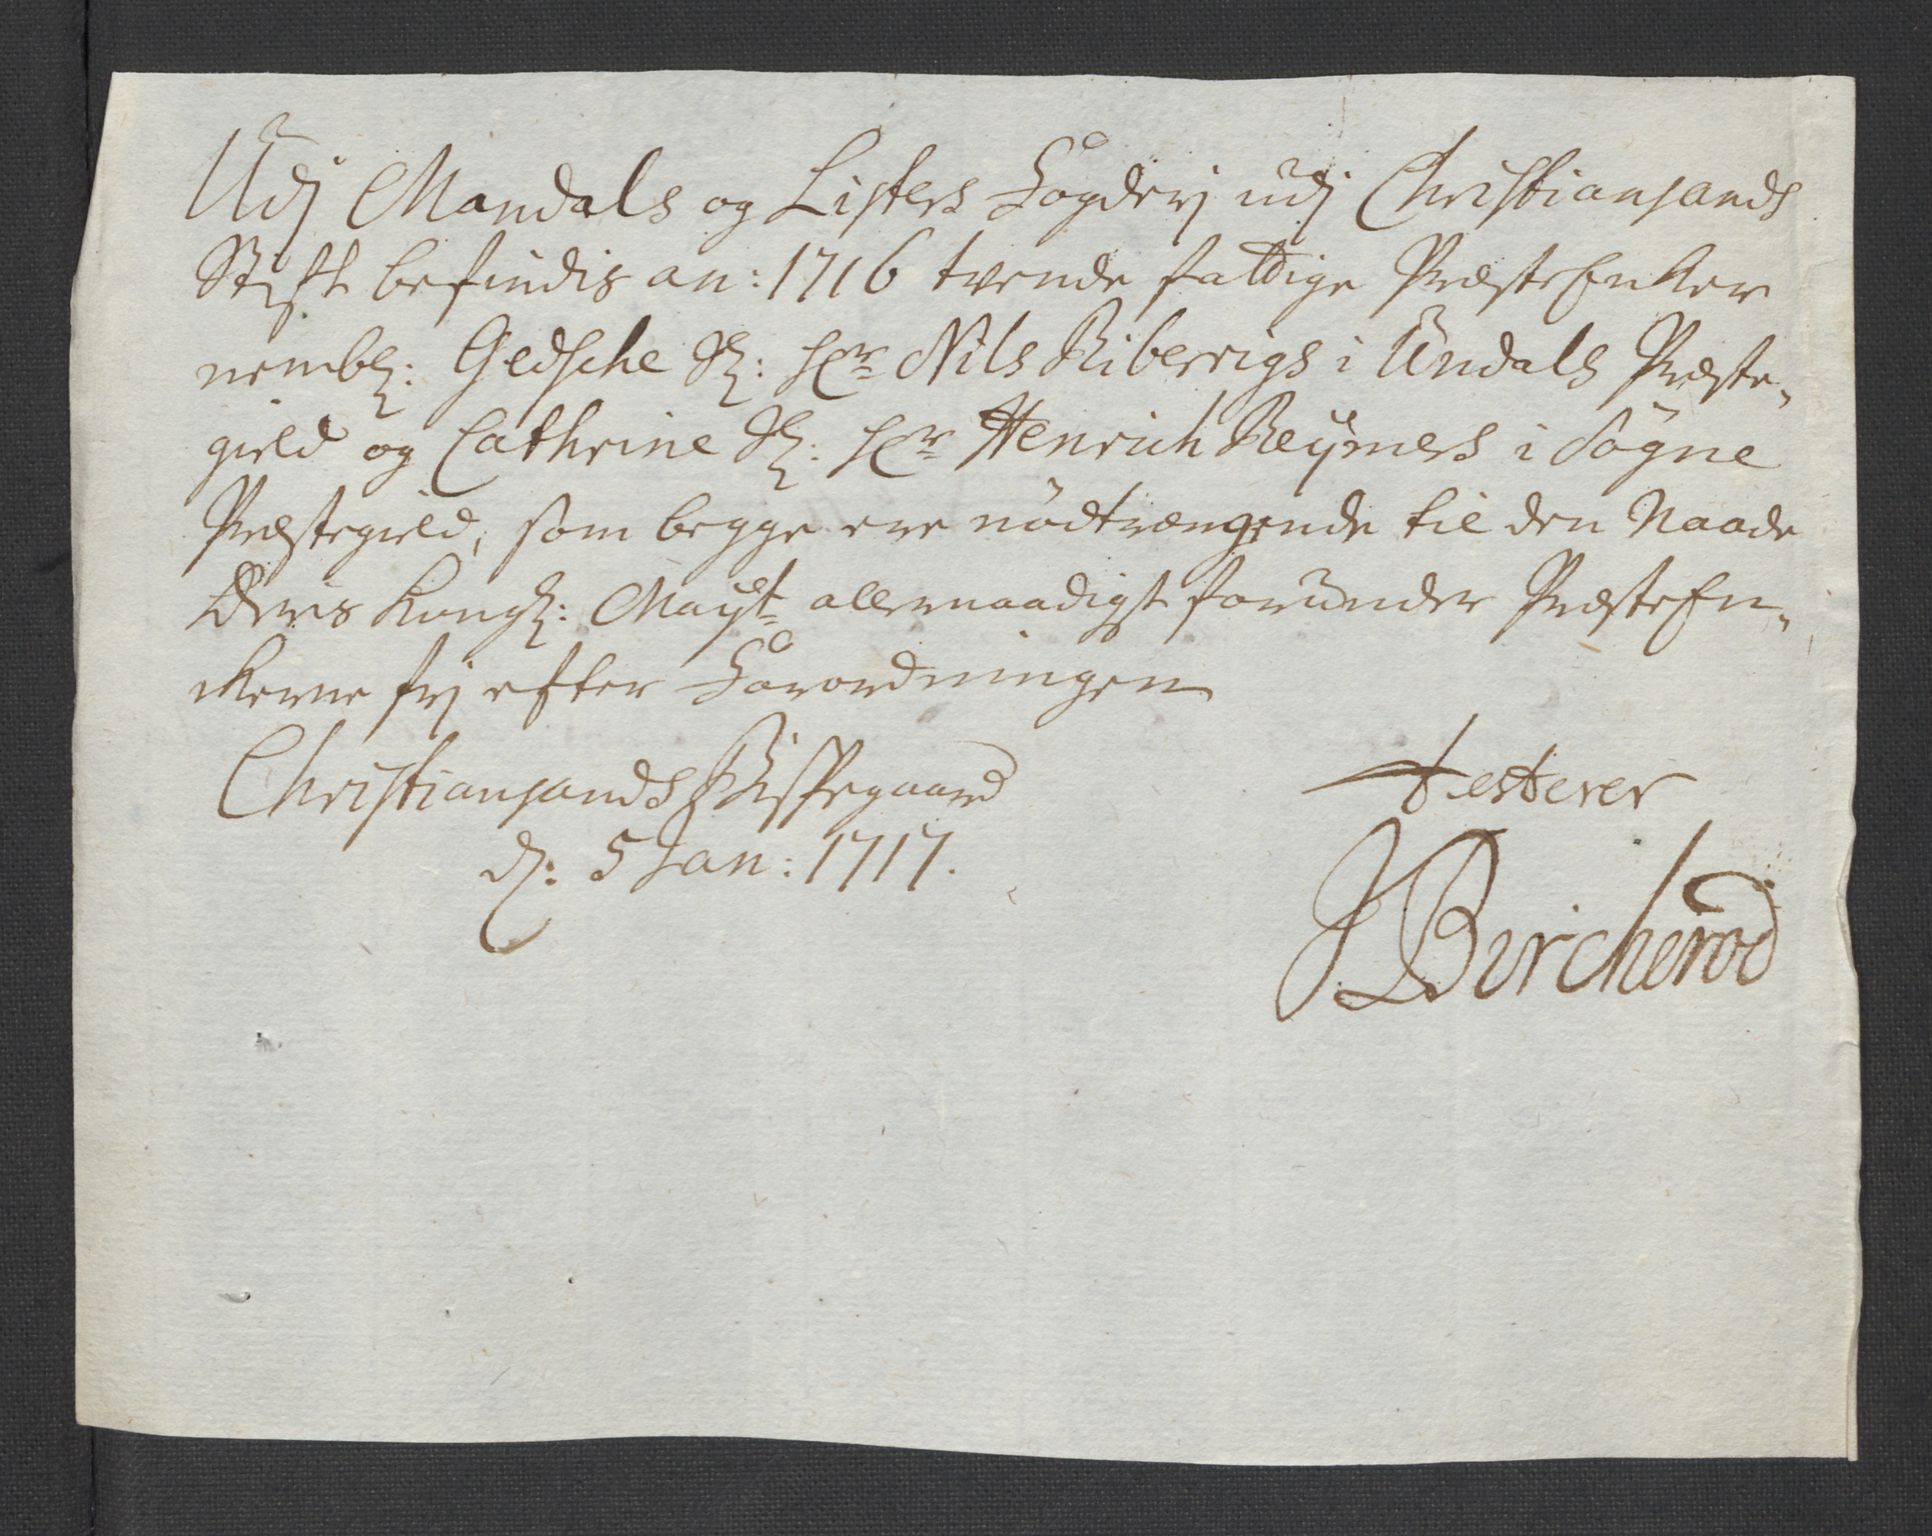 Udj Mandals og Listers Fogderj udj Christiansands
Stift befindis an: 1716 tvende fattige PræsteEnker
nembl: Gedsche Sl: Hr Nils Riberrigs i Undals Præste-
gield og Cathrine Sl: Hr Henrich Reÿmers i Sögne
Præstegield, som begge ere nödtrængende til den Naade
Deris Kongl: Mayst allernaadigst forunder PræsteEn-
kerne frj efter Forordningen
Christiansands Bispegaard
d: 5 Jan: 1717.
testerer
J Bircherod